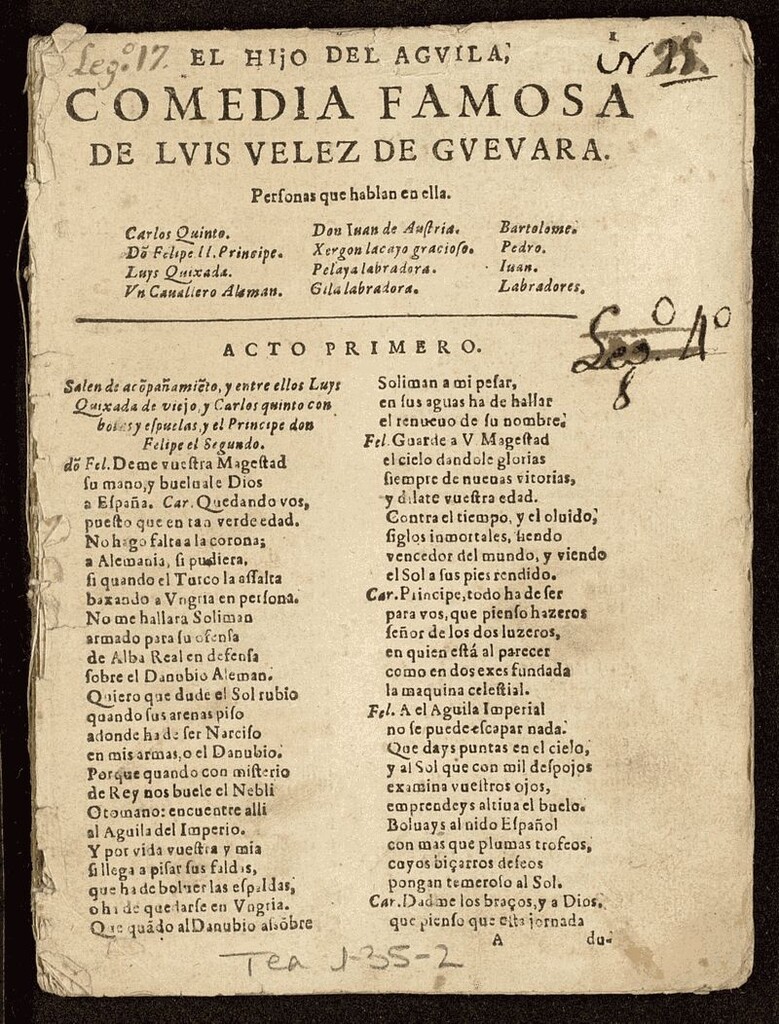 Leg.º 17.
EL HIJO DEL AGVILA,
N 25.
COMEDIA FAMOSA
DE LVIS VELEZ DE GVEVARA.
Personas que hablan en ella.
Carlos Quinto. Don Iuan de Austria. Bartolome.
Dõ Felipe II. Principe. Xergon lacayo gracioso. Pedro.
Luys Quixada. Pelaya labradora. Iuan.
Vn Cauallero Aleman. Gila labradora. Labradores.
Leg.º 4º
8
ACTO PRIMERO.
Salen de acõpañamiẽto, y entre ellos Luys
Quixada de viejo, y Carlos quinto con
botas y espuelas, y el Principe don
Felipe el Segundo.
dõ Fel. Deme vuestra Magestad
su mano, y bueluale Dios
a España. Car. Quedando vos,
puesto que en tan verde edad.
No hago falta a la corona;
a Alemania, si pudiera,
si quando el Turco la assalta
baxando a Vngria en persona.
No me hallara Soliman
armado para su ofensa
de Alba Real en defensa
sobre el Danubio Aleman.
Quiero que dude el Sol rubio
quando sus arenas piso
adonde ha de ser Narciso
en mis armas, o el Danubio.
Porque quando con misterio
de Rey nos buele el Nebli
Otomano: encuentre alli
al Aguila del Imperio.
Y por vida vuestra y mia
si llega a pisar sus faldas,
que ha de boluer las espaldas,
o ha de quedarse en Vngria.
Que quãdo al Danubio assõbre
Soliman a mi pesar,
en sus aguas ha de hallar
el renueuo de su nombre.
Fel. Guarde a V Magestad
el cielo dandole glorias
siempre de nueuas vitorias,
y dilate vuestra edad.
Contra el tiempo, y el oluido,
siglos inmortales, siendo
vencedor del mundo, y viendo
el Sol a sus pies rendido.
Car. Principe, todo ha de ser
para vos, que pienso hazeros
señor de los dos luzeros,
en quien está al parecer
como en dos exes fundada
la maquina celestial.
Fel. A el Aguila Imperial
no se puede escapar nada.
Que days puntas en el cielo,
y al Sol que con mil despojos
examina vuestros ojos,
emprendeys altiua el buelo.
Boluays al nido Español
con mas que plumas trofeos,
cuyos biçarros deseos
pongan temeroso al Sol.
Car. Dadme los braços, y a Dios,
que pienso que esta jornada
A du-
Tea 1-35-2